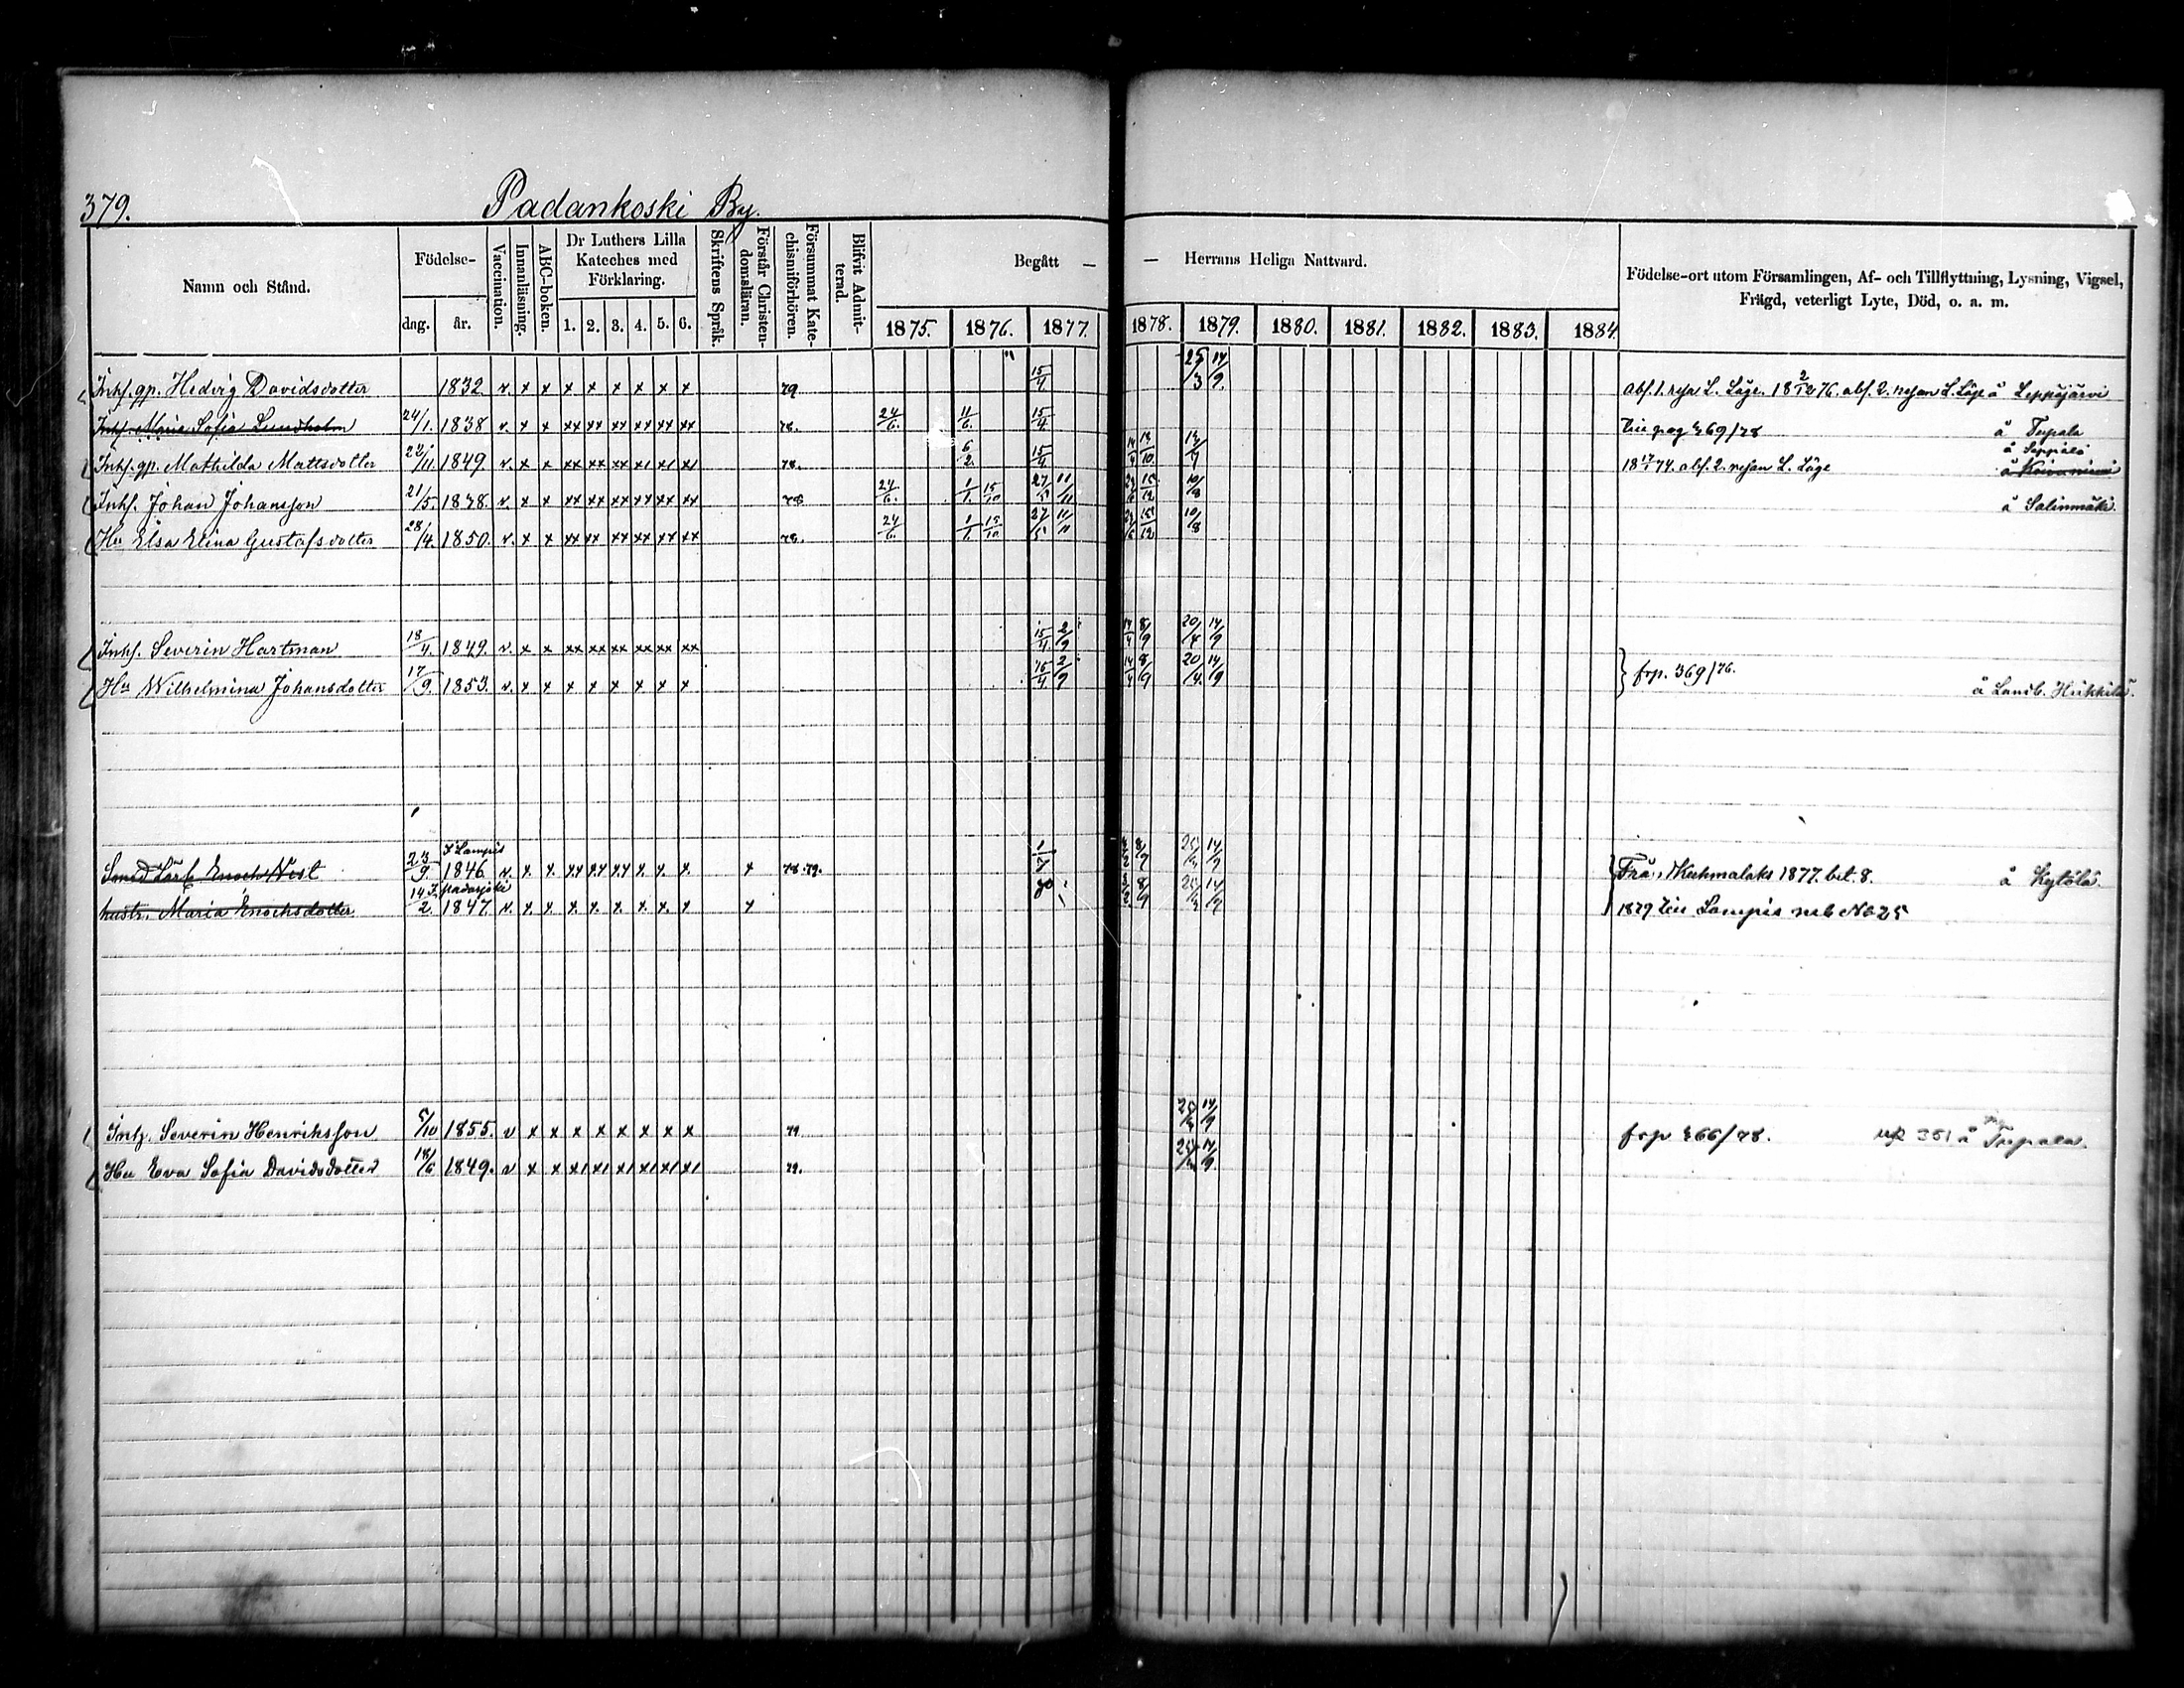 379.
Padankoski By.
Namn och Stånd.
Födelse-
dag.
år.
Vaccination.
Innanläsning.
ABC-boken.
Dr Luthers Lilla
Kateches med
Förklaring.
1. 2. 3. 4. 5. 6.
Skriftens Språk.
Förstår Christen-
domsläran.
Försummat Kate-
chismiförhören.
Blifvit Admit-
terad.
Begått — — Herrans Heliga Nattvard.
1875. 1876. 1877. 1878. 1879. 1880. 1881. 1882. 1883. 1884
Födelse-ort utom Församlingen, Af- och Tillflyttning, Lysning, Vigsel,
Frägd, veterligt Lyte, Död, o. a. m.
Inhs. gp. Hedvig Davidsdotter 1832 v. x x x x x x x x 79 15/4 25/3 14/9 abs. 1. resa L. Läge. 18 2/12 76. abs. 2. resan L. Läge å Leppäjärvi
Inhs. Maria Sofia Lundholm 24/1. 1838 v. x x xx xx xx xx xx xx 78. 24/6. 11/6. 15/4 å Tupala
Inhs. gp. Mathilda Mattsdotter 22/11 1849 v. x x xx xx xx x x x 78. 6/2. 15/4 14/7 18 17/ 74. abs. 2. resan L. Läge å Seppälä
Inhs. Johan Johansson 21/5. 1838. v. x x xx xx xx xx xx xx 78 24/6. 1/1. 15/10 27/5 11/11 15/12 10/8 å Salinmäki.
Hu Elsa Elina Gustafsdotter 28/4. 1850. v. x x xx xx xx xx xx xx 78. 24/6. 1/1. 15/10 27/5 11/11 15/12 10/8
Inhs. Severin Hartman 18/4. 1849. v. x x xx xx xx xx xx xx 15/4 2/9 14/4 8/9 20/4 14/9
Hu Wilhelmina Johansdotter 17/9. 1853. v. x x x x x x x x 15/4. 2/9 14/4 8/9 20/4. 14/9 } frp. 369/76.
å Landb. Hukkila.
f Lampis
Smed Karl Enoch Vest 23/9 1846 v. x x xx xx xx x x x x 78. 79. 1/7 8/9 14/9 Från Kuhmalaks 1877. bet. 8. å Kytölä.
f. Padasjoki
hustr. Maria Enochsdotter 14/2. 1847. v. x x x x x x x x x 8/9 14/9 1879 till Lampis m b No 25
Inhs. Severin Henriksson 5/10 1855. v x x x x x x x x 79 14/9 frp 366/78. å Tupala.
Hu Eva Sofia Davidsdotter 18/6 1849. v x x 79. 14/9.